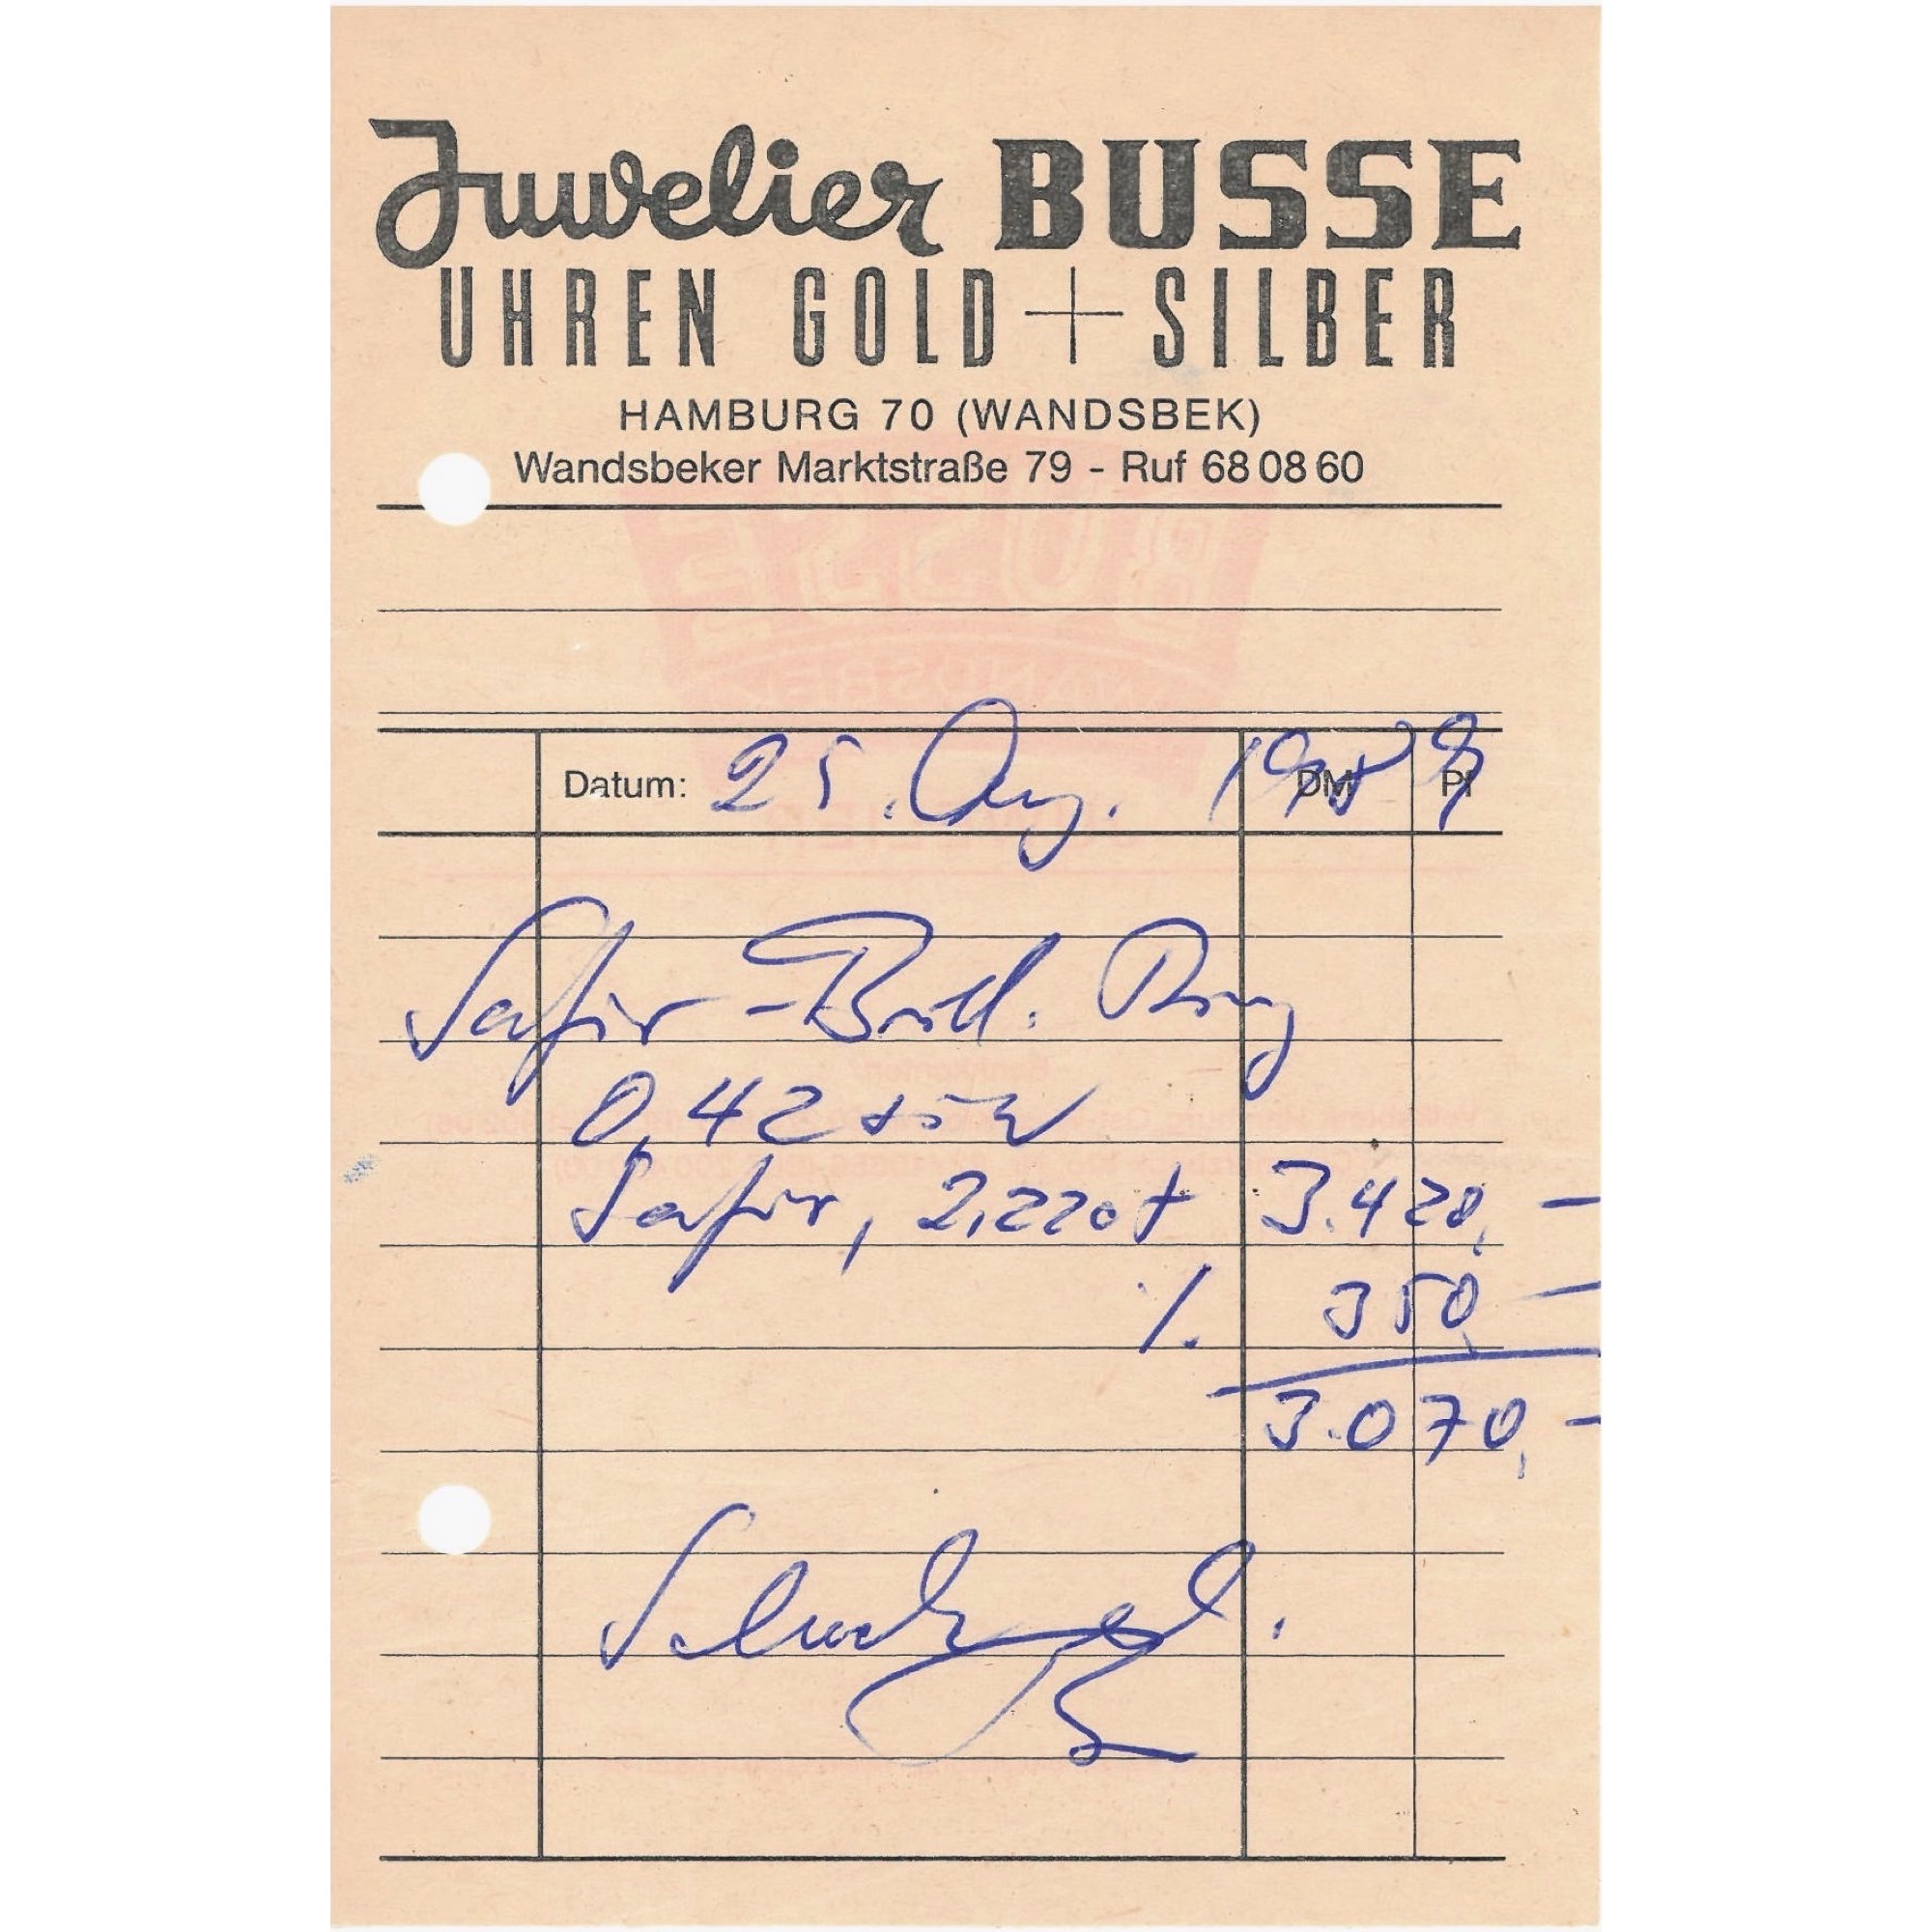 Juwelier BUSSE
UHREN GOLD + SILBER
HAMBURG 70 (WANDSBEK)
Wandsbeker Marktstraße 79 - Ruf 68 08 60
BUSSE
WANDSBEK
Datum: 25. Aug. 1989 DM Pf
Safir-Brill. Ring
0,42
Safir, 2,22ct 3.420,-
%. 350,-
3.070,-